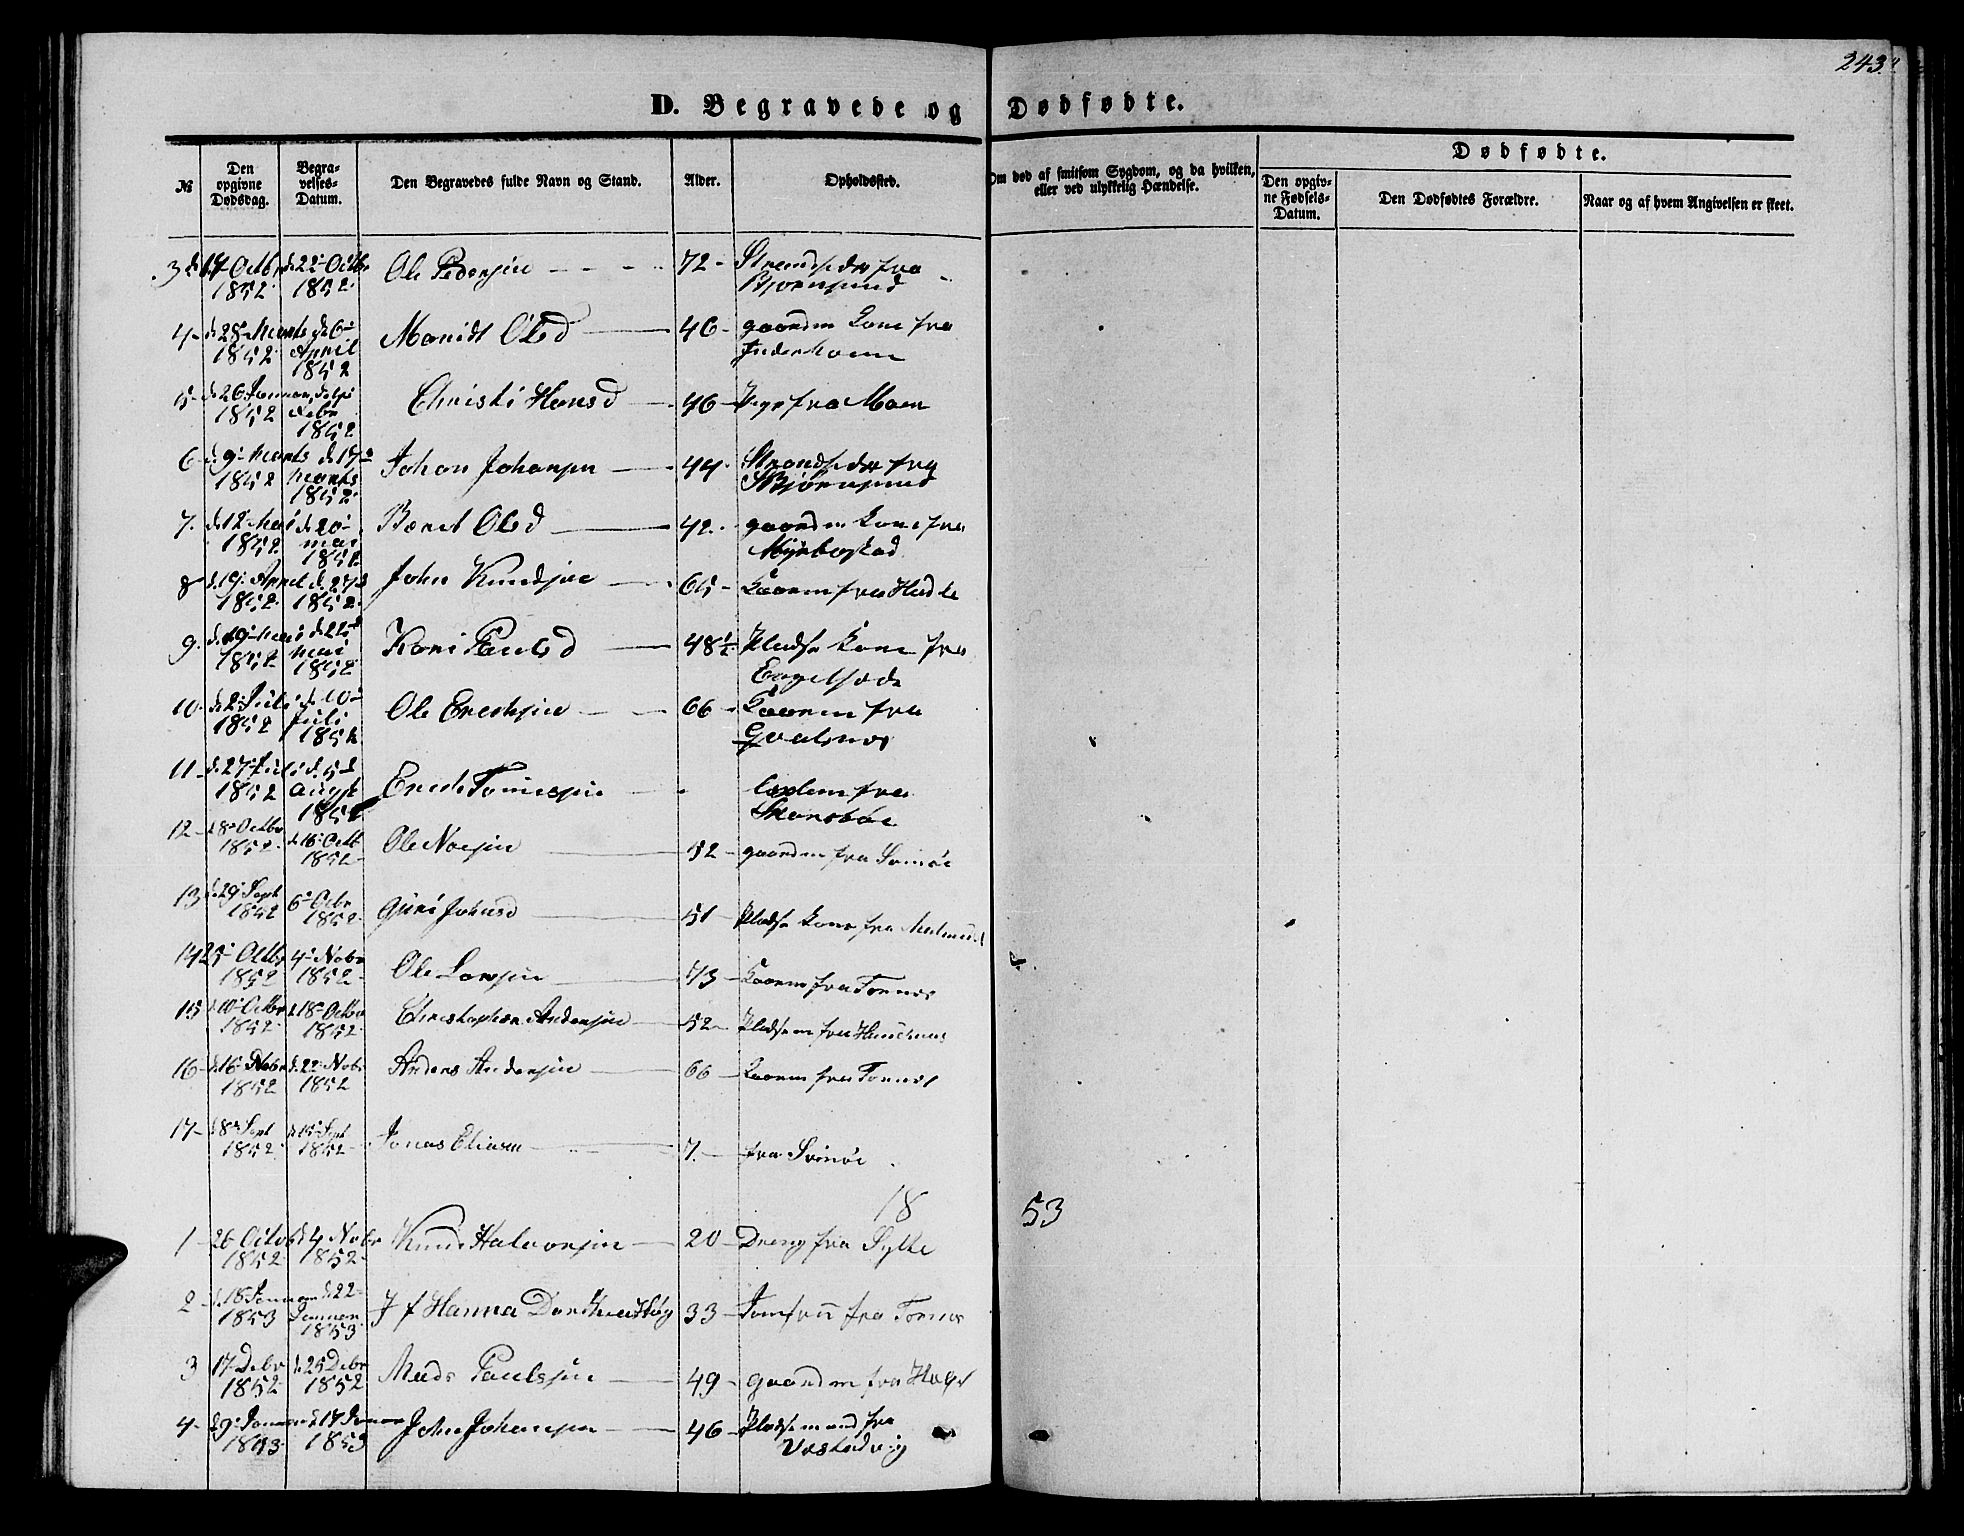 243.
D. Begravede og Dødfødte.
№
Den opgivne Dødsdag.
Begravelses-Datum.
Den Begravedes fulde Navn og Stand.
Alder.
Opholdssted.
Om død af smitsom Sygdom, og da hvilken, eller ved ulykkelig Hændelse.
Dødfødte.
Den opgivne Fødsels-Datum.
Den Dødfødtes Forældre.
Naar og af hvem Angivelsen er skeet.
3 d. 17 Octbr 1852 d. 22 Octbr 1852 Ole Pedersen 72 Strandsidder fra Bjørnsund
4 d. 28 Marts 1852 d. 6 April 1852 Maridt Olsd 46 gaardm Kone fra Inderhaven
5 d. 26 Januar 1852 Febr 1852 Christi Hansd 46 fra Moen
6 d. 9 Marts 1852 d. 17 Marts 1852 Johan Johansen 44 Strandsidder fra Bjørnsund
7. d. 12 Mai 1852 d. 20 mai 1852 Beret Olsd 42. gaardm Kone fra Myrbostad
8 d. 19. April 1852 d. 27 1852 John Knudsen 65 Kaarm fra Hustle
9. d. 19 mai 1852 d. 22 mai 1852 Kari Paulsd 48½ Pladse Kone fra
10 d. 2 Juli 1852 d. 10 Juli 1852 Ole Ericksen 66 Kaarm fra Gualsnes
11 d. 27 Juli 1852 d. 5 Augst 1852 Erick Tomesen fra Skarsbøe
12 d. 8 Octbr 1852 d. 16 Octb 1852 Ole Noesen 52 gaardm fra Svinøe
13 d. 29 Sept 1852 6 Ocbr 1852 Guri Johnsd 51 Pladse Kone fra
14 25 Octbr 1852 4 Nobr 1852 Ole Larsen 73 Kaarm fra Tornes
15 d. 10 Octbr 1852 d. 18 Octbr 1852 Christopher Andersen 52 Pladsem fra
16 d. 16 Nobr 1852 d. 22 Nobr 1852 Anders Andersen 66 Kaarm fra Tornes
17 d. 8 Sept 1852 d. 15 Sept 1852 Jonas Eliasen 7. fra Svinøe
18 53
1 26 Octob 1852 d. 4 Nobr 1852 Knud Halvorsen 20 Dreng fra Sylte
2 d. 18 Januar 1853 d. 22 Januar 1853 J f Hanna 33 Jomfru fra Tornes
3 17 Debr 1852 d. 25 Debr 1852 Mads Paulsen 49 gaardm fra
4 d. 9 Januar 1853 d. 17 Januar 1853 John Johansen 46 Pladsemand fra Vestadvig